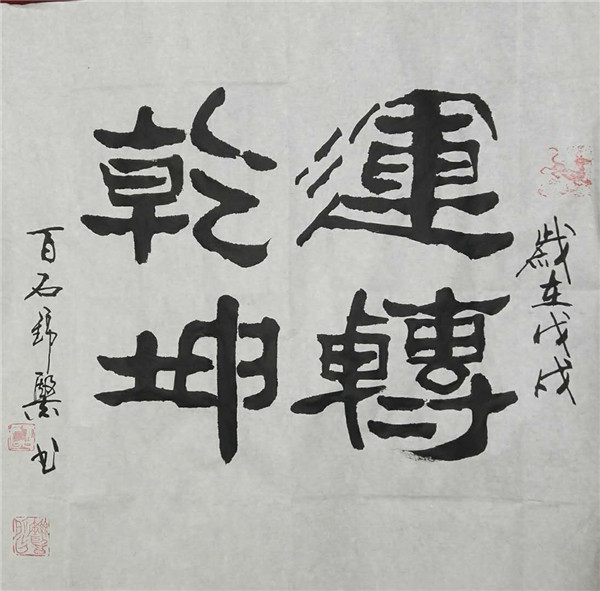 歲在戊戌
運轉
乾坤
百石 書